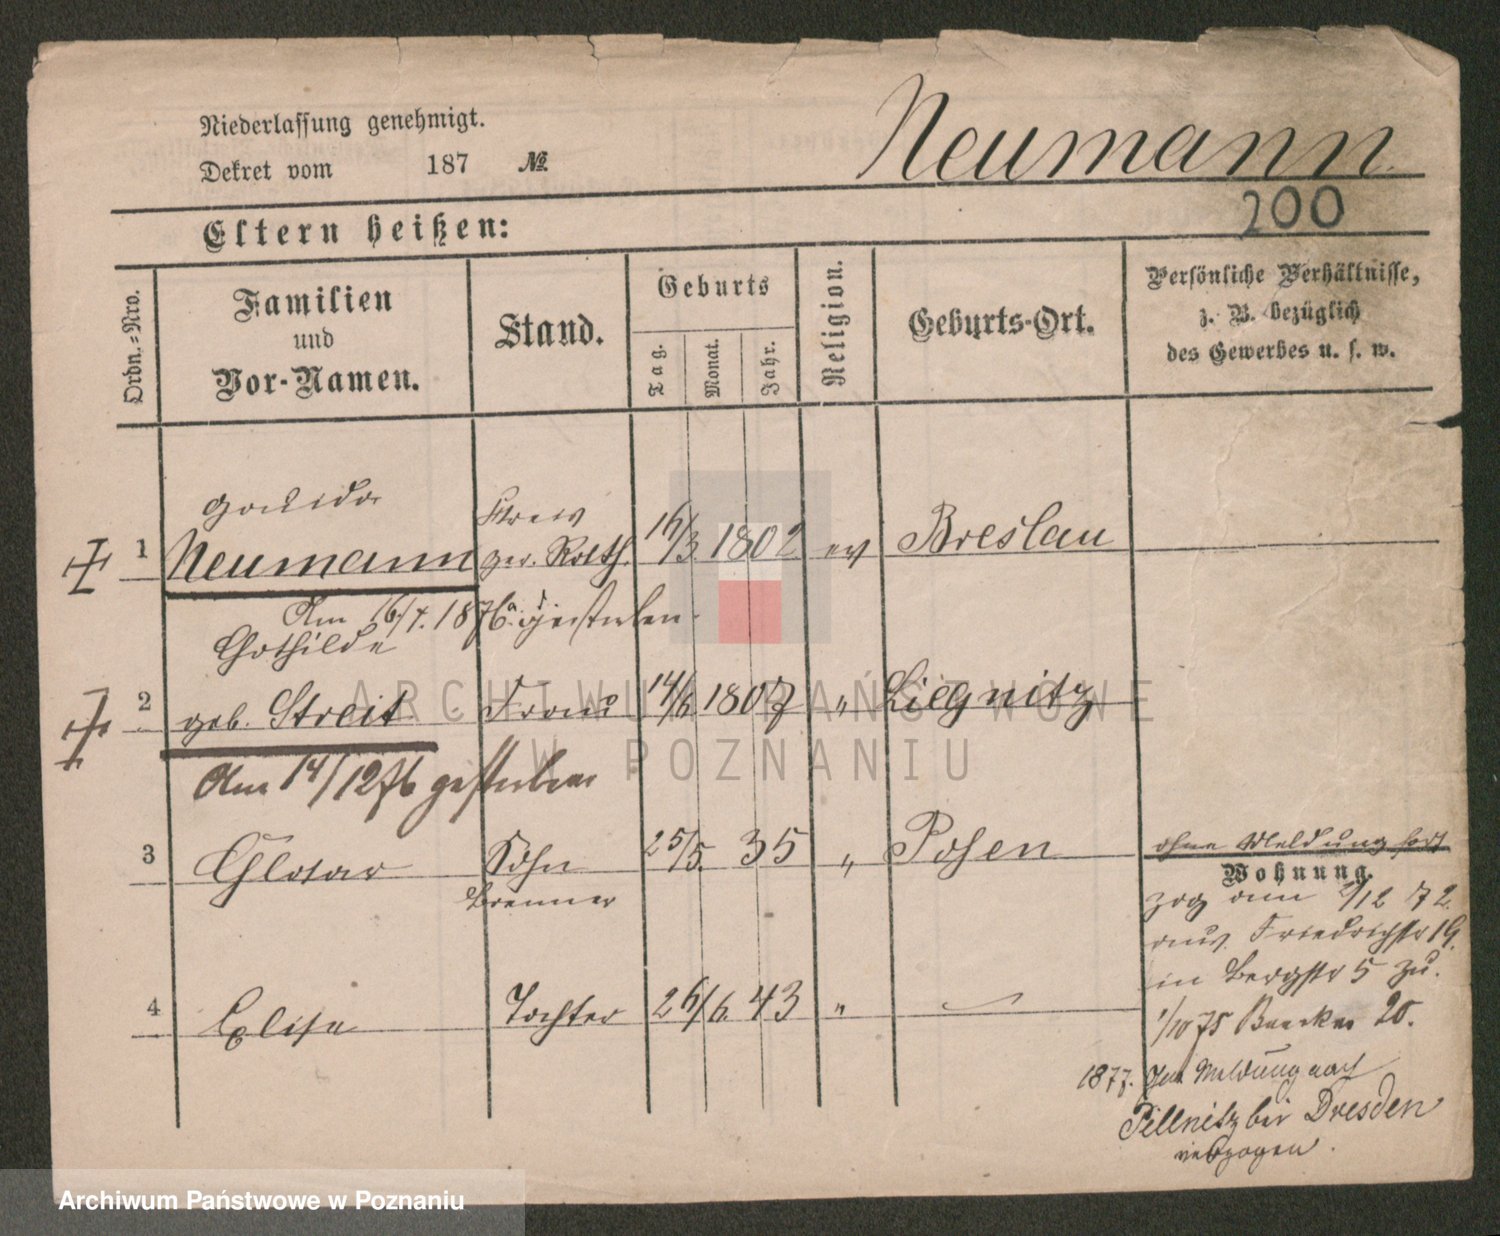 Niederlassung genehmigt.
Dekret vom 187 №
Neumann
200
Eltern heißen:
Ordn.=Nro.
Familien
und
Vor-Namen.
Stand.
Geburts
Tag.
Monat.
Jahr.
Religion.
Geburts-Ort.
Persönliche Verhältnisse,
z. B. bezüglich
des Gewerbes u. s. w.
1 Neumann 16/3. 1802 ev Breslau
Am 16/7. 1876 gestorben.
2 geb. Streit Frau 14/6. 1807 " Liegnitz
Am 14/12 76 gestorben
3 Lothar Sohn 25/5. 35 " Posen
ohne Meldung fort
Wohnung.
zog am /12 72.
aus Friedrichstr 19.
in Bergstr 5 zu.
4 Elise Tochter 26/6. 43 "
1/10 75 20.
1877. Meldung nach
Pillnitz bei Dresden
verzogen.
ARCHIWUM PAŃSTWOWE
W POZNANIU
Archiwum Państwowe w Poznaniu